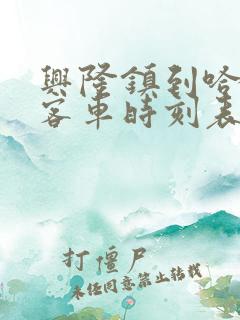 興隆鎮到哈
客車時刻表
打僵尸
未经同意禁止转载